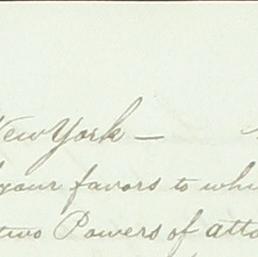 New York —
your favors to
two Powers of